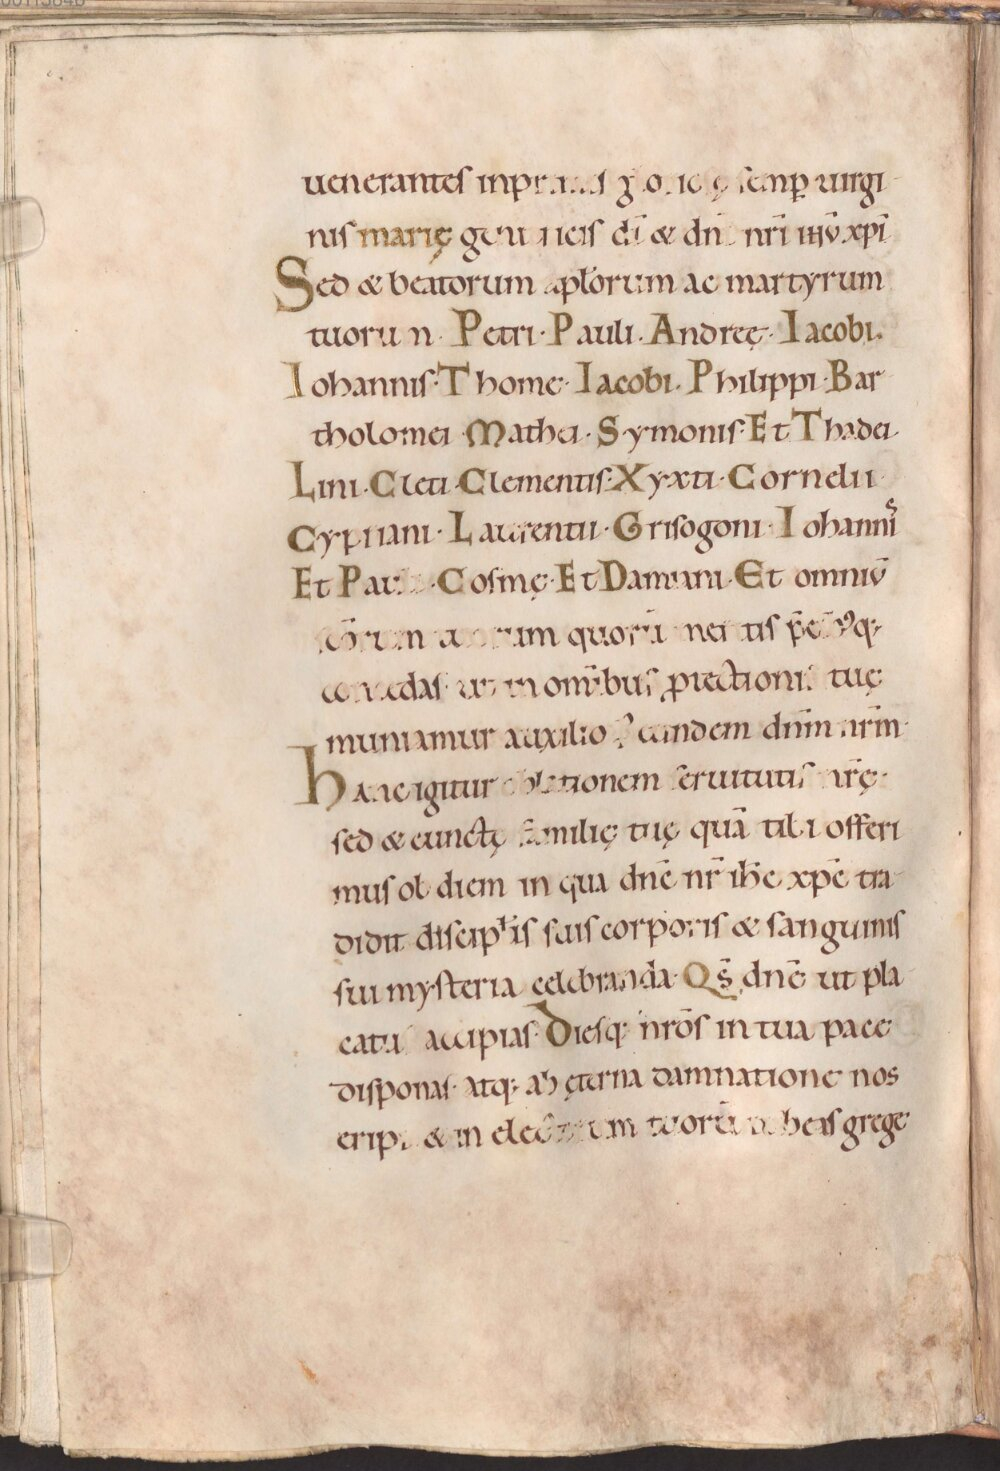 uenerantes inprimis glo semp̄ uirgi
nis marię genitricis dī & dn̄i nr̄i iħv̄ xpī
Sed & beatorum aplōrum ac martyrum
tuorum · Petri · Pauli · Andreę · Iacobi ·
Iohannis · Thome · Iacobi · Philippi · Bar
tholomei · Mathei · Symonis · Et Thadei ·
Lini · Cleti · Clementis · Xyxti · Cornelii ·
Cypriani · Laurentii · Grisogoni · Iohannis
Et Pauli · Cosmę · Et Damiani · Et omniv̄
quorū meritis p̄cib;q;
concedas · ut in omībus ꝓtectionis tuę
muniamur auxilio P̄ eundem dnm̄ nrm̄ ·
Hanc igitur oblationem seruitutis nr̄ę ·
sed & cunctę familię tuę quā tibi offeri
mus ob diem in qua dnē nr̄ ihē xpē tra
didit discipłis suis corporis & sanguinis
sui mysteria celebranda · Qs̄ dnē ut pla
catus accipias · Diesq; nrōs in tua pace
disponas · atq; ab ęterna damnatione nos
eripi & in electorum tuorū iubeas grege